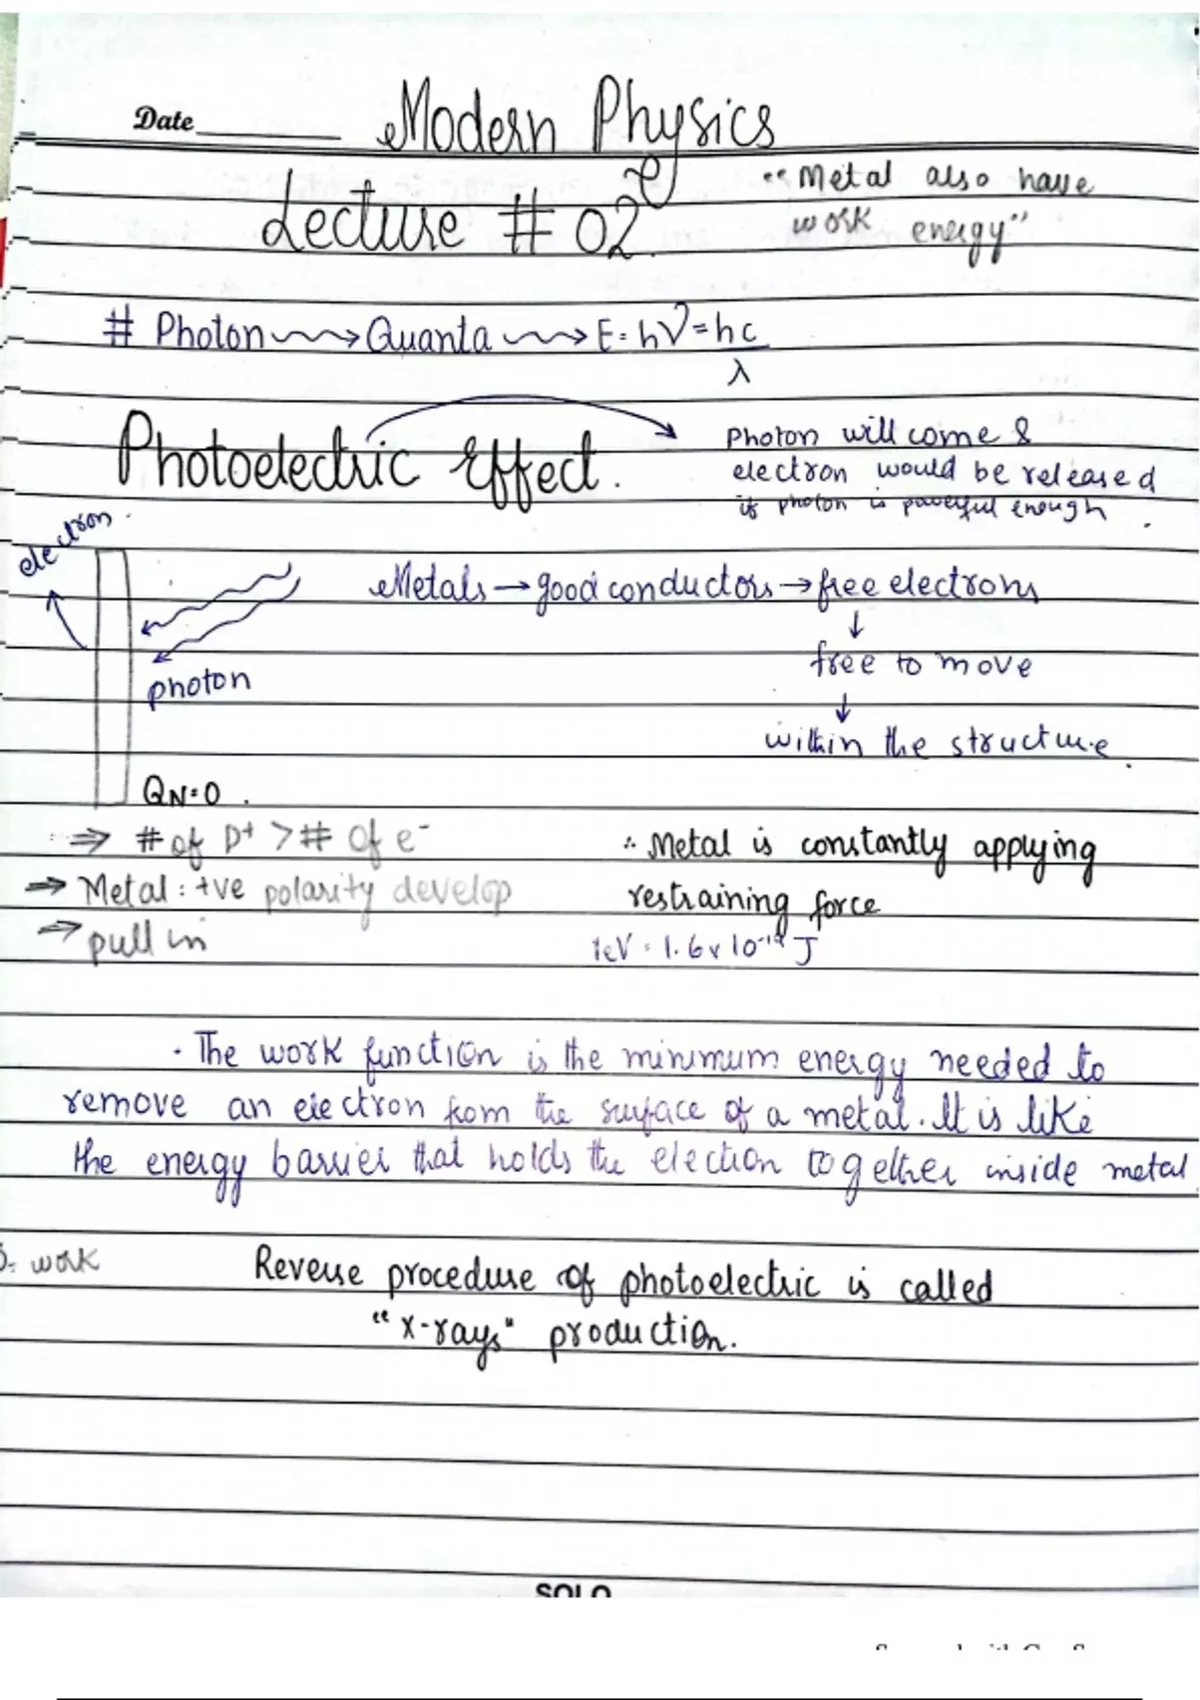 Date Modern Physics
Lecture # 02
"Metal also have
work energy"
# Photon → Quanta → E = hν = hc
λ
Photoelectric Effect.
Photon will come &
electron would be released
if photon is powerful enough.
electron.
Metals → good conductors → free electrons
↓
free to move
photon
↓
within the structure.
QN=0.
⇒ # of p⁺ > # of e⁻
∴ Metal is constantly applying
⇒ Metal: +ve polarity develop
restraining force
⇒ pull in
1eV = 1.6 x 10⁻¹⁹ J
. The work function is the minimum energy needed to
remove an electron from the surface of a metal. It is like
the energy barrier that holds the electron together inside metal.
work
Reverse procedure of photoelectric is called
"x-rays" production.
SOLO